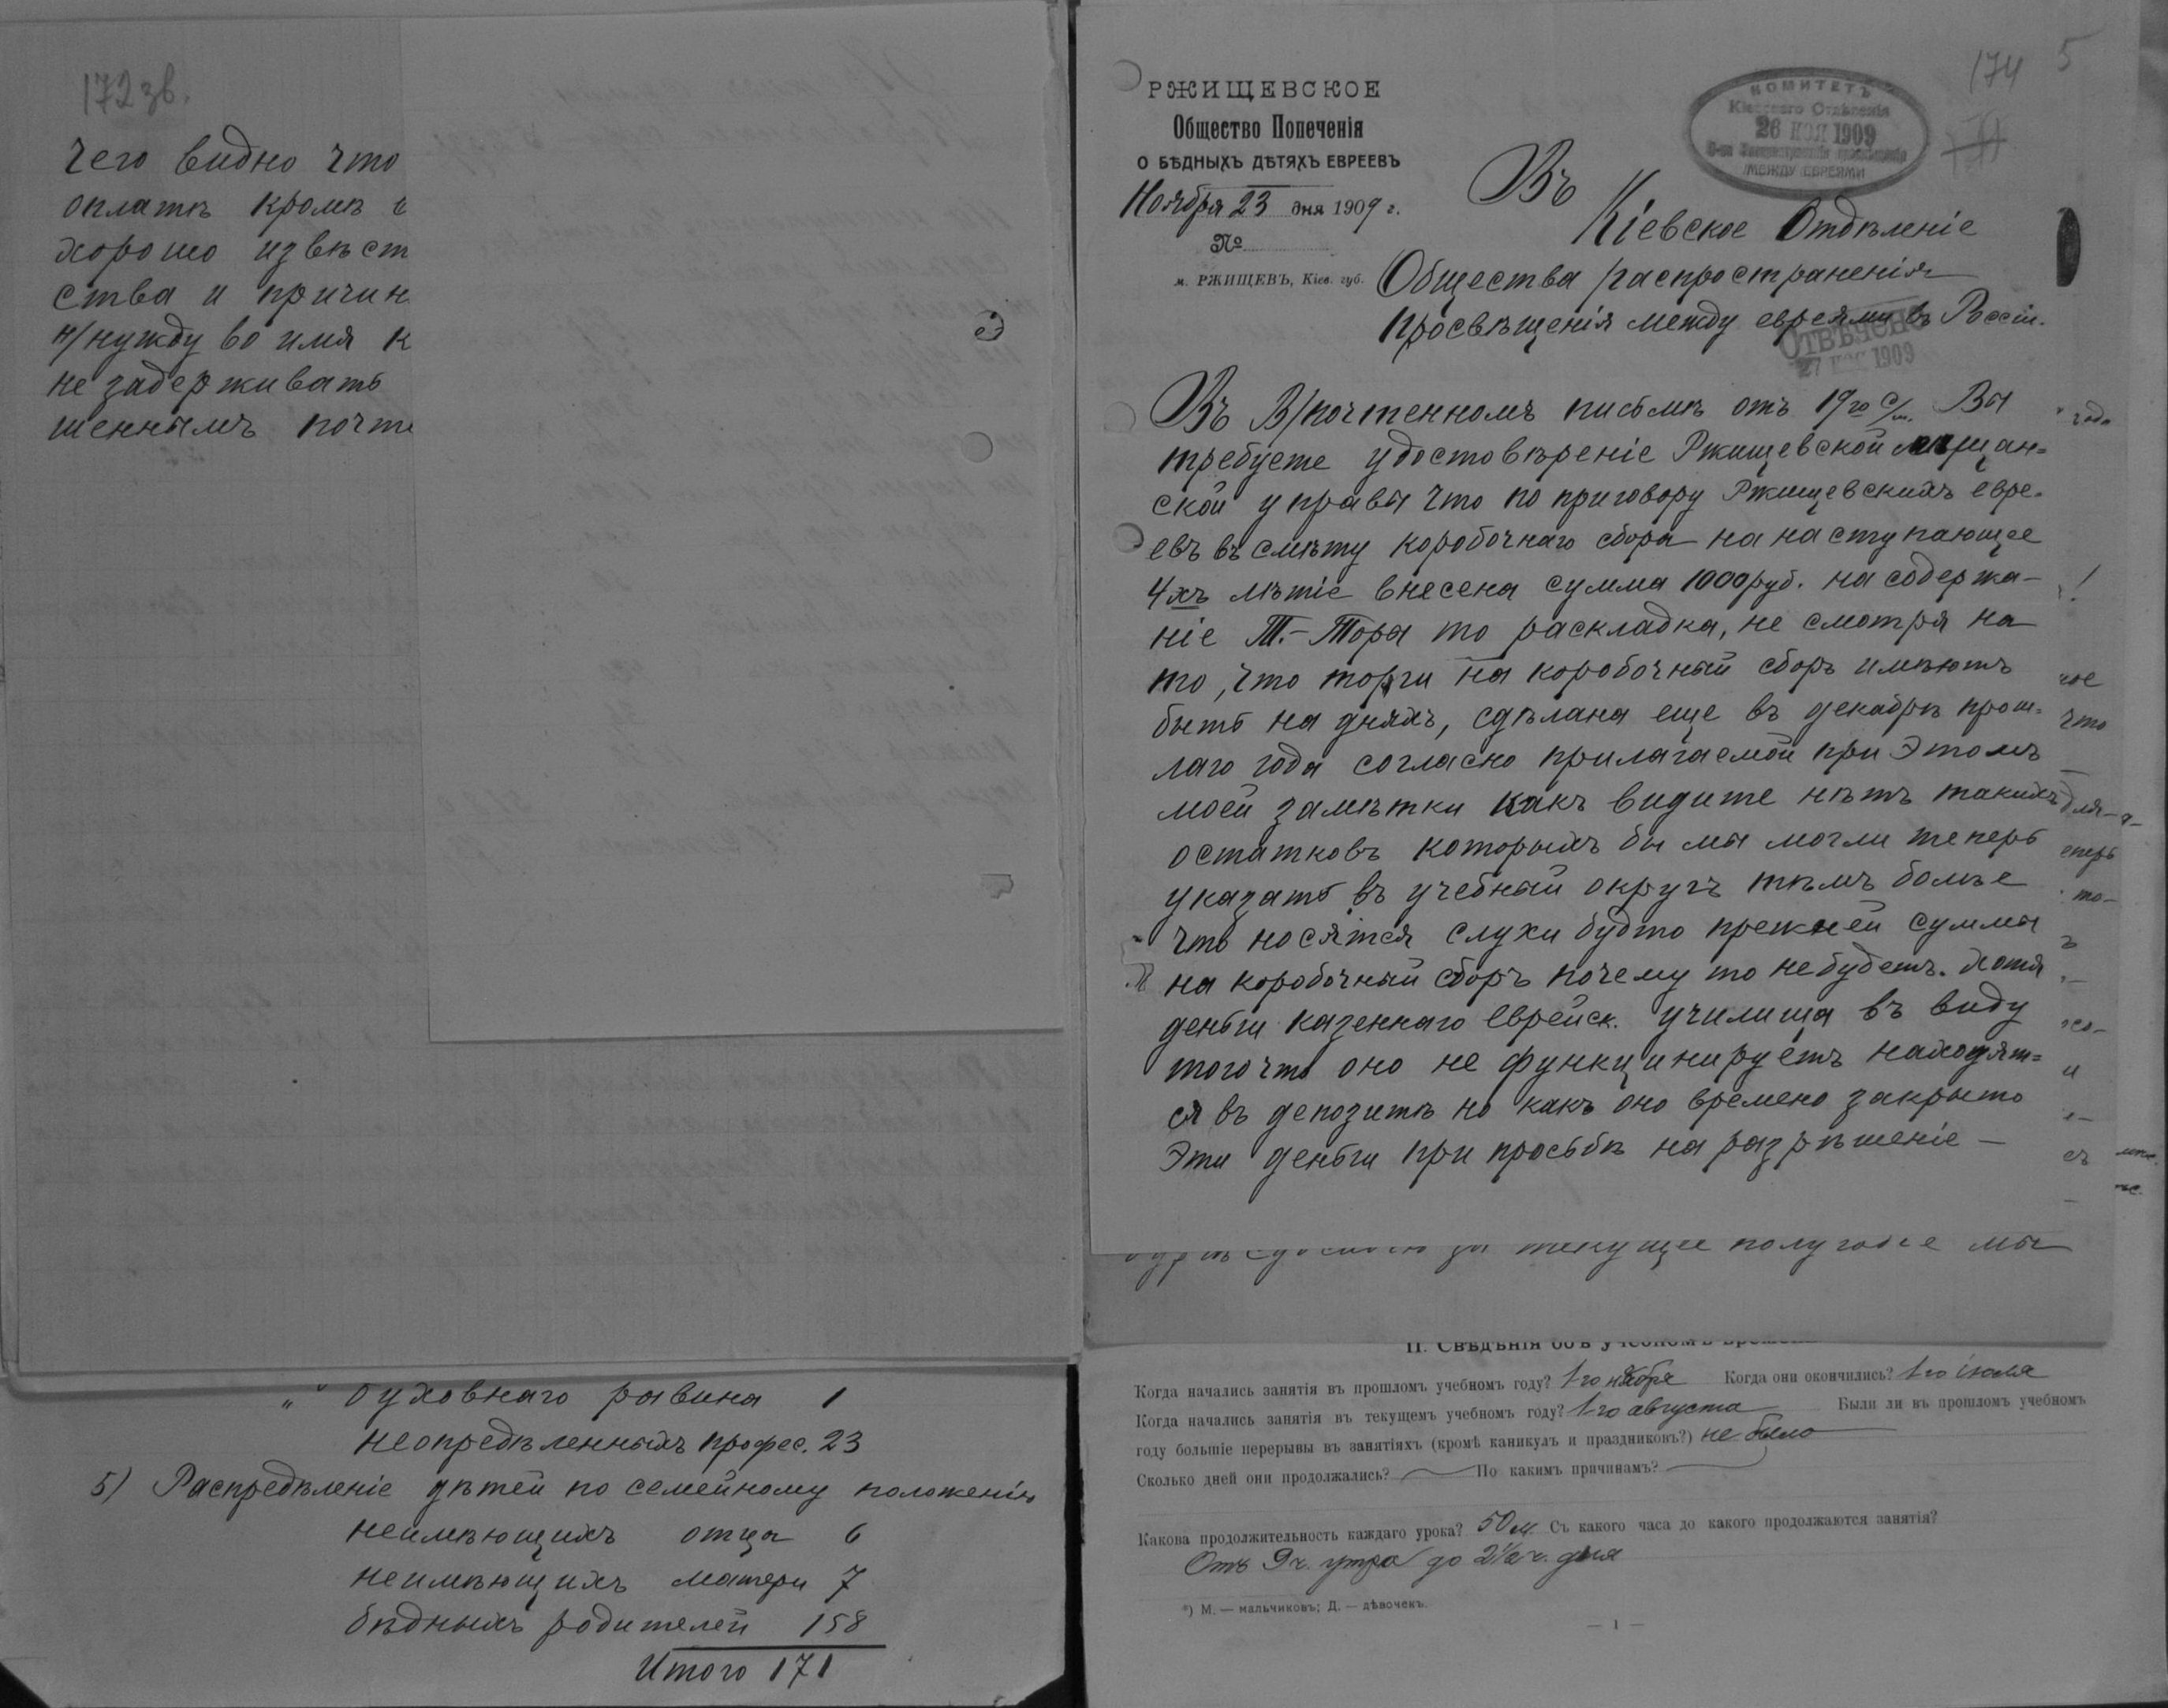 172 зв.
чего видно что
оплатѣ кромѣ
хорошо извѣст
ства и причин
н/нужду во имя к
не задерживать
шеннымъ почте
" духовнаго равина 1
неопредѣленныхъ профес. 23
5) Распредѣленіе дѣтей по семейному положенію
неимѣющихъ отца 6
неимѣющихъ матери 7
бѣдныхъ родителей 158
Итого 171
174 5
РЖИЩЕВСКОЕ
Общество Попеченія
О БѢДНЫХЪ ДѢТЯХЪ ЕВРЕЕВЪ
Ноября 23 дня 1909 г.
№
м. РЖИЩЕВЪ, Кіев. губ.
КОМИТЕТЪ
Кіевскаго Отдѣленія
26 НОЯ 1909
О-ва Распространенія просвѣщенія
МЕЖДУ ЕВРЕЯМИ
Въ
Кіевское Отдѣленіе
Общества распространенія
Просвѣщенія между евреями въ Россіи.
ОТВѢЧЕНО
27 НОЯ 1909
Въ В/почтенномъ письмѣ отъ 19го с/м. Вы
требуете удостовѣреніе Ржищевской мѣщан=
ской управы что по приговору Ржищевскихъ евре-
евъ въ смѣту коробочнаго сбора на наступающее
4хъ лѣтіе внесена сумма 1000 руб. на содержа-
ніе Т.-Торы то раскладка, не смотря на
то, что торги на коробочный сборъ имѣютъ
быть на дняхъ, сдѣлана еще въ декабрѣ прош=
лаго года согласно прилагаемой при этомъ
моей замѣтки какъ видите нѣтъ такихъ
остатковъ которыхъ бы мы могли теперь
указать въ учебный округъ тѣмъ болѣе
что носятся слухи будто прежней суммы
на коробочный сборъ почему то небудетъ. Хотя
деньги казеннаго еврейск. училища въ виду
того что оно не функцинируетъ находят=
ся въ депозитѣ но какъ оно времено закрыто
Эти деньги при просьбѣ на разрѣшеніе —
года
!
ное
что
для
еперь
то-
текущее полугодіе мы
II. Свѣдѣнія объ учебномъ времени
Когда начались занятія въ прошломъ учебномъ году? 1го ноября Когда они окончились? 1го іюля
Когда начались занятія въ текущемъ учебномъ году? 1-го августа Были ли въ прошломъ учебномъ
году большіе перерывы въ занятіяхъ (кромѣ каникулъ и праздниковъ?) не было
Сколько дней они продолжались? По какимъ причинамъ?
Какова продолжительность каждаго урока? 50 м. Съ какого часа до какого продолжаются занятія?
Отъ 9 ч. утра до 2½ ч. дня
*) М. — мальчиковъ; Д. — дѣвочекъ.
— 1 —